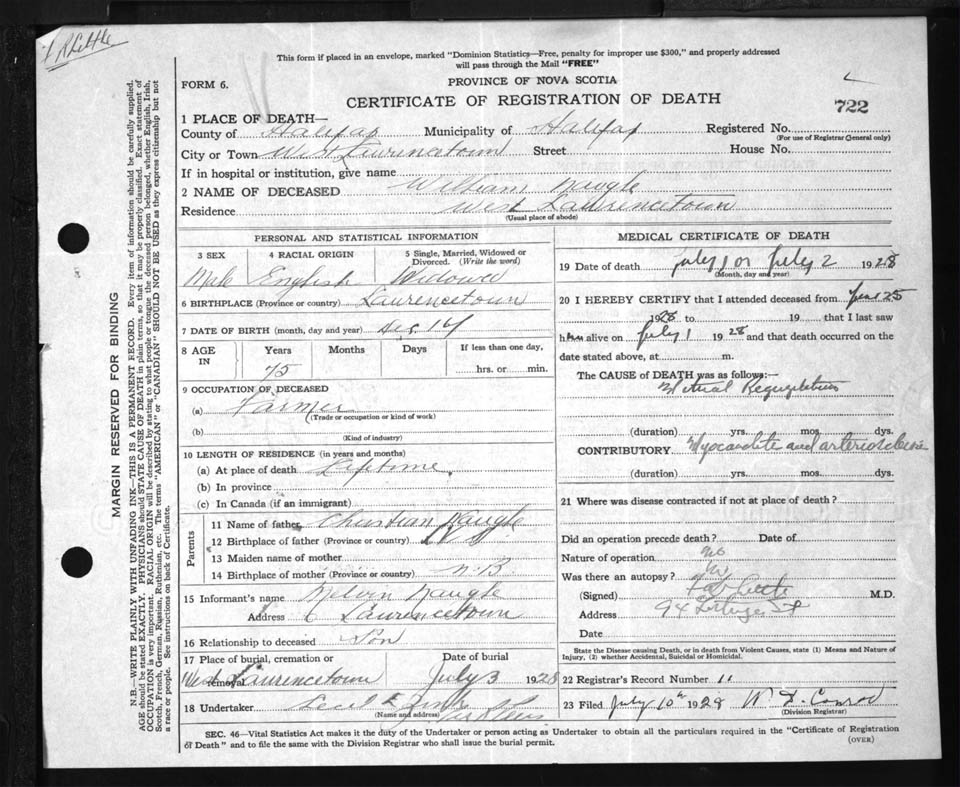 F R Little
This form if placed in an envelope, marked "Dominion Statistics—Free, penalty for improper use $300," and properly addressed
will pass through the Mail "FREE"
FORM 6.
PROVINCE OF NOVA SCOTIA
CERTIFICATE OF REGISTRATION OF DEATH
722
1 PLACE OF DEATH—
County of Halifax Municipality of Halifax Registered No.
(For use of Registrar General only)
City or Town West Lawrencetown Street House No.
If in hospital or institution, give name
2 NAME OF DECEASED William Naugle
Residence West Lawrencetown
(Usual place of abode)
PERSONAL AND STATISTICAL INFORMATION
3 SEX 4 RACIAL ORIGIN 5 Single, Married, Widowed or Divorced. (Write the word)
Male English Widowed
6 BIRTHPLACE (Province or country) Lawrencetown
7 DATE OF BIRTH (month, day and year) Dec 14
8 AGE IN Years Months Days If less than one day,
75 hrs. or min.
9 OCCUPATION OF DECEASED
(a) Farmer
(Trade or occupation or kind of work)
(b)
(Kind of industry)
10 LENGTH OF RESIDENCE (in years and months)
(a) At place of death Lifetime
(b) In province
(c) In Canada (if an immigrant)
Parents
11 Name of father Christian Naugle
12 Birthplace of father (Province or country) N S
13 Maiden name of mother
14 Birthplace of mother (Province or country) N.B
15 Informant's name Melvin Naugle
Address Lawrencetown
16 Relationship to deceased Son
17 Place of burial, cremation or removal Date of burial
West Lawrencetown July 3 1928
18 Undertaker Cecil E
(Name and address)
MEDICAL CERTIFICATE OF DEATH
19 Date of death July 1 or July 2 1928
(Month, day and year)
20 I HEREBY CERTIFY that I attended deceased from June 25
1928 to 19 that I last saw
him alive on July 1 1928 and that death occurred on the
date stated above, at m.
The CAUSE of DEATH was as follows:—
Mitral Regurgitation
(duration) yrs. mos. dys.
CONTRIBUTORY Myocardite and arteriosclerosis
(duration) yrs. mos. dys.
21 Where was disease contracted if not at place of death?
Did an operation precede death? No Date of
Nature of operation
Was there an autopsy? No
(Signed) F R Little M.D.
Address 94 St
Date
State the Disease causing Death, or in death from Violent Causes, state (1) Means and Nature of
Injury, (2) whether Accidental, Suicidal or Homicidal.
22 Registrar's Record Number 11
23 Filed July 10th 1928 W. F. Conrod
(Division Registrar)
SEC. 46—Vital Statistics Act makes it the duty of the Undertaker or person acting as Undertaker to obtain all the particulars required in the "Certificate of Registration
of Death" and to file the same with the Division Registrar who shall issue the burial permit.
(OVER)
MARGIN RESERVED FOR BINDING
N.B.—WRITE PLAINLY WITH UNFADING INK—THIS IS A PERMANENT RECORD. Every item of information should be carefully supplied.
AGE should be stated EXACTLY. PHYSICIANS should STATE CAUSE OF DEATH in plain terms, so that it may be properly classified. Exact statement of
OCCUPATION is very important. RACIAL ORIGIN will be described by stating to what people or tongue the deceased person belonged, whether English, Irish,
Scotch, French, German, Russian, Ruthenian, etc. The terms "AMERICAN" or "CANADIAN" SHOULD NOT BE USED as they express citizenship but not
a race or people. See instructions on back of Certificate.